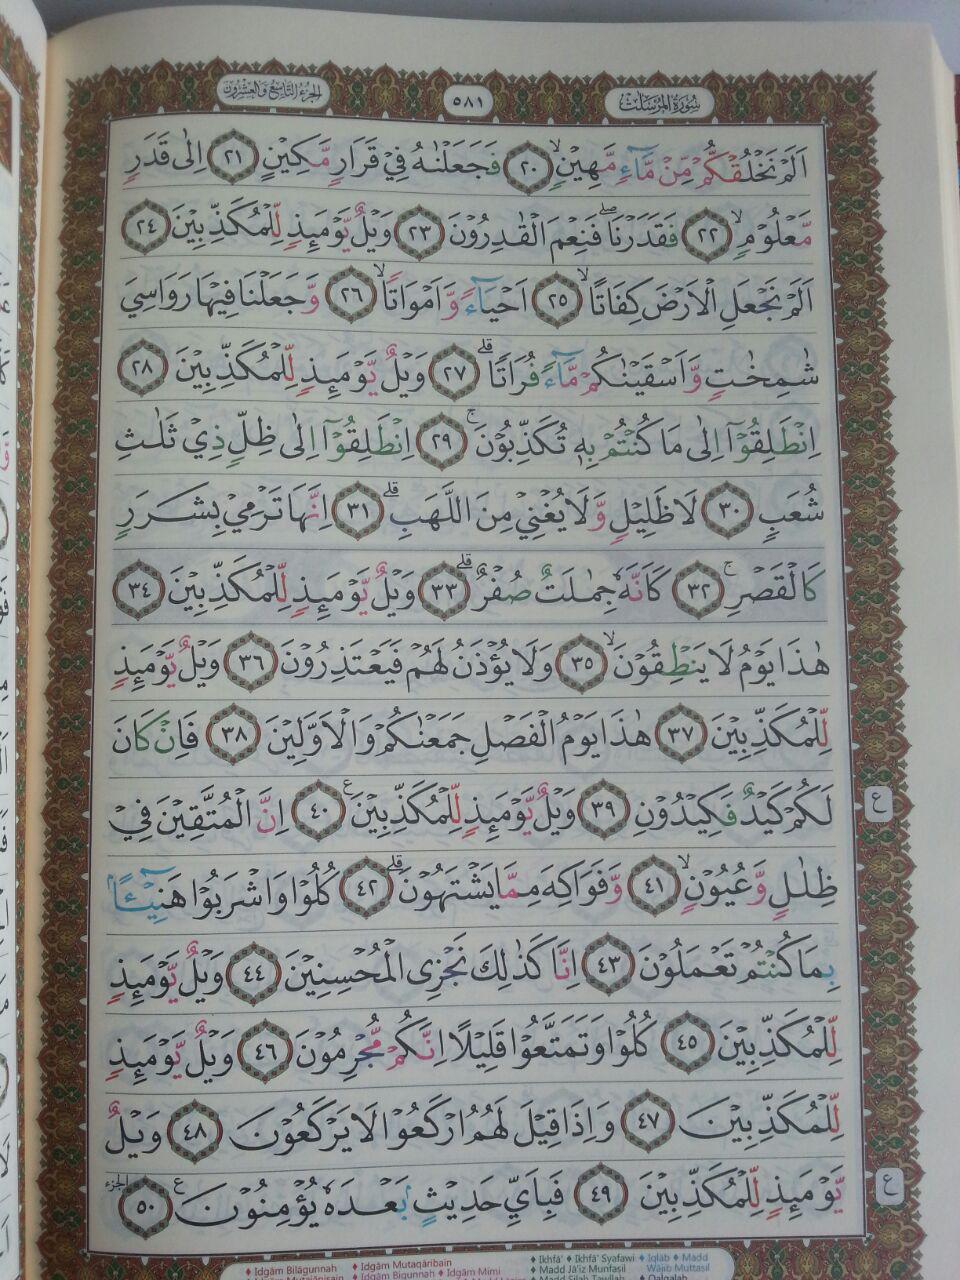 سُورَةُ المُرْسَلٰت
٥٨١
الجزء التاسع والعشرون
اَلَمْ نَخْلُقْكُّمْ مِّنْ مَّاۤءٍ مَّهِيْنٍۙ ٢٠ فَجَعَلْنٰهُ فِيْ قَرَارٍ مَّكِيْنٍ ٢١ اِلٰى قَدَرٍ
مَّعْلُوْمٍۙ ٢٢ فَقَدَرْنَاۖ فَنِعْمَ الْقٰدِرُوْنَ ٢٣ وَيْلٌ يَّوْمَئِذٍ لِّلْمُكَذِّبِيْنَ ٢٤
اَلَمْ نَجْعَلِ الْاَرْضَ كِفَاتًاۙ ٢٥ اَحْيَاۤءً وَّاَمْوَاتًاۙ ٢٦ وَّجَعَلْنَا فِيْهَا رَوَاسِيَ
شٰمِخٰتٍ وَّاَسْقَيْنٰكُمْ مَّاۤءً فُرَاتًاۗ ٢٧ وَيْلٌ يَّوْمَئِذٍ لِّلْمُكَذِّبِيْنَ ٢٨
اِنْطَلِقُوْٓا اِلٰى مَا كُنْتُمْ بِهٖ تُكَذِّبُوْنَۚ ٢٩ اِنْطَلِقُوْٓا اِلٰى ظِلٍّ ذِيْ ثَلٰثِ
شُعَبٍ ٣٠ لَا ظَلِيْلٍ وَّلَا يُغْنِيْ مِنَ اللَّهَبِۗ ٣١ اِنَّهَا تَرْمِيْ بِشَرَرٍ
كَالْقَصْرِۚ ٣٢ كَاَنَّهٗ جِمٰلَتٌ صُفْرٌۗ ٣٣ وَيْلٌ يَّوْمَئِذٍ لِّلْمُكَذِّبِيْنَ ٣٤
هٰذَا يَوْمُ لَا يَنْطِقُوْنَۙ ٣٥ وَلَا يُؤْذَنُ لَهُمْ فَيَعْتَذِرُوْنَ ٣٦ وَيْلٌ يَّوْمَئِذٍ
لِّلْمُكَذِّبِيْنَ ٣٧ هٰذَا يَوْمُ الْفَصْلِ جَمَعْنٰكُمْ وَالْاَوَّلِيْنَ ٣٨ فَاِنْ كَانَ
لَكُمْ كَيْدٌ فَكِيْدُوْنِ ٣٩ وَيْلٌ يَّوْمَئِذٍ لِّلْمُكَذِّبِيْنَ ࣖ ٤٠ اِنَّ الْمُتَّقِيْنَ فِيْ
ع
ظِلٰلٍ وَّعُيُوْنٍۙ ٤١ وَّفَوَاكِهَ مِمَّا يَشْتَهُوْنَۗ ٤٢ كُلُوْا وَاشْرَبُوْا هَنِيْۤـًٔا
بِمَا كُنْتُمْ تَعْمَلُوْنَ ٤٣ اِنَّا كَذٰلِكَ نَجْزِى الْمُحْسِنِيْنَ ٤٤ وَيْلٌ يَّوْمَئِذٍ
لِّلْمُكَذِّبِيْنَ ٤٥ كُلُوْا وَتَمَتَّعُوْا قَلِيْلًا اِنَّكُمْ مُّجْرِمُوْنَ ٤٦ وَيْلٌ يَّوْمَئِذٍ
لِّلْمُكَذِّبِيْنَ ٤٧ وَاِذَا قِيْلَ لَهُمُ ارْكَعُوْا لَا يَرْكَعُوْنَ ٤٨ وَيْلٌ
يَّوْمَئِذٍ لِّلْمُكَذِّبِيْنَ ٤٩ فَبِاَيِّ حَدِيْثٍۢ بَعْدَهٗ يُؤْمِنُوْنَ ࣖ ٥٠ الجزء
ع
Idgām Bilāgunnah Idgām Mutaqāribain Ikhfā' Ikhfā' Syafawi Iqlāb Madd
Idgām Mutajānisain Idgām Bigunnah Idgām Mimi Madd Jā'iz Munfaṣil Wājib Muttaṣil
Madd Silah Tawīlah Qalqalah